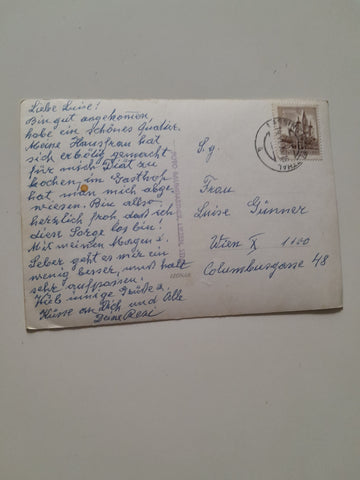 Liebe Luise!
Bin gut angekommen,
habe ein Schönes Quatier.
Meine Hausfrau hat
sich erbötig gemacht
für mich Diät zu
kochen, im Gasthof
hat man mich abge-
wiesen. Bin also
herzlich froh das ich
diese Sorge los bin!
Mit meinem Magen u.
Leber geht es mir ein
wenig besser, muß halt
sehr aufpassen.
Viele innige Grüße u.
Küsse an Dich und Alle
Deine Resi
S. g.
Frau
Luise Günner
Wien X 1100
Columbusgasse 48